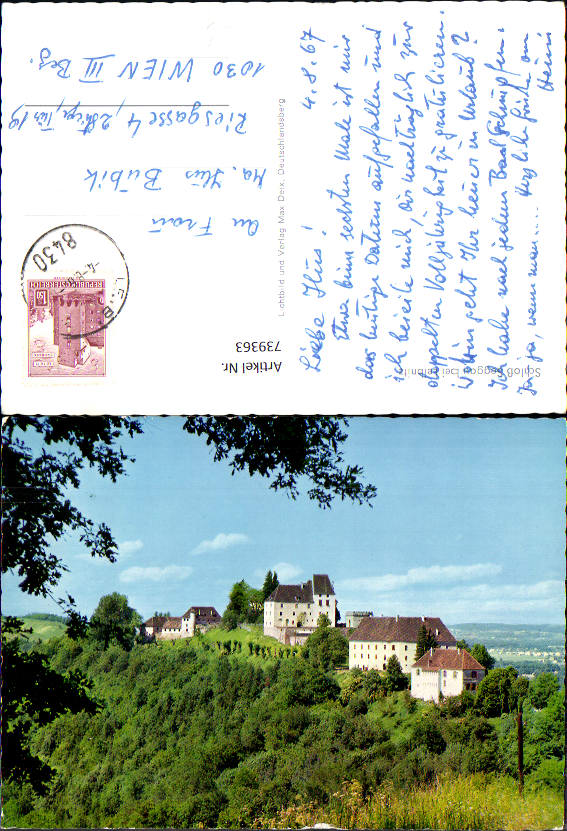 4.8.67
Liebe Ilus!
Etwa beim sechsten Male ist mir
das heutige Datum aufgefallen und
ich beeile mich, Dir nachträglich zur
doppelten Volljährigkeit zu gratulieren.
geht Ihr heuer in Urlaub?
Ich habe nach jedem Bad Schnupfen.
Tja ja, wenn man.... Herzliche Grüße an
Schloß Seggau bei Leibnitz
Lichtbild und Verlag Max Derx, Deutschlandsberg
An Frau
Ma. Ilus Bubik
Riesgasse 4, 2. Stiege, Tür 19
1030 WIEN III Bez.
8430
REPUBLIK ÖSTERREICH
Artikel Nr.
739363